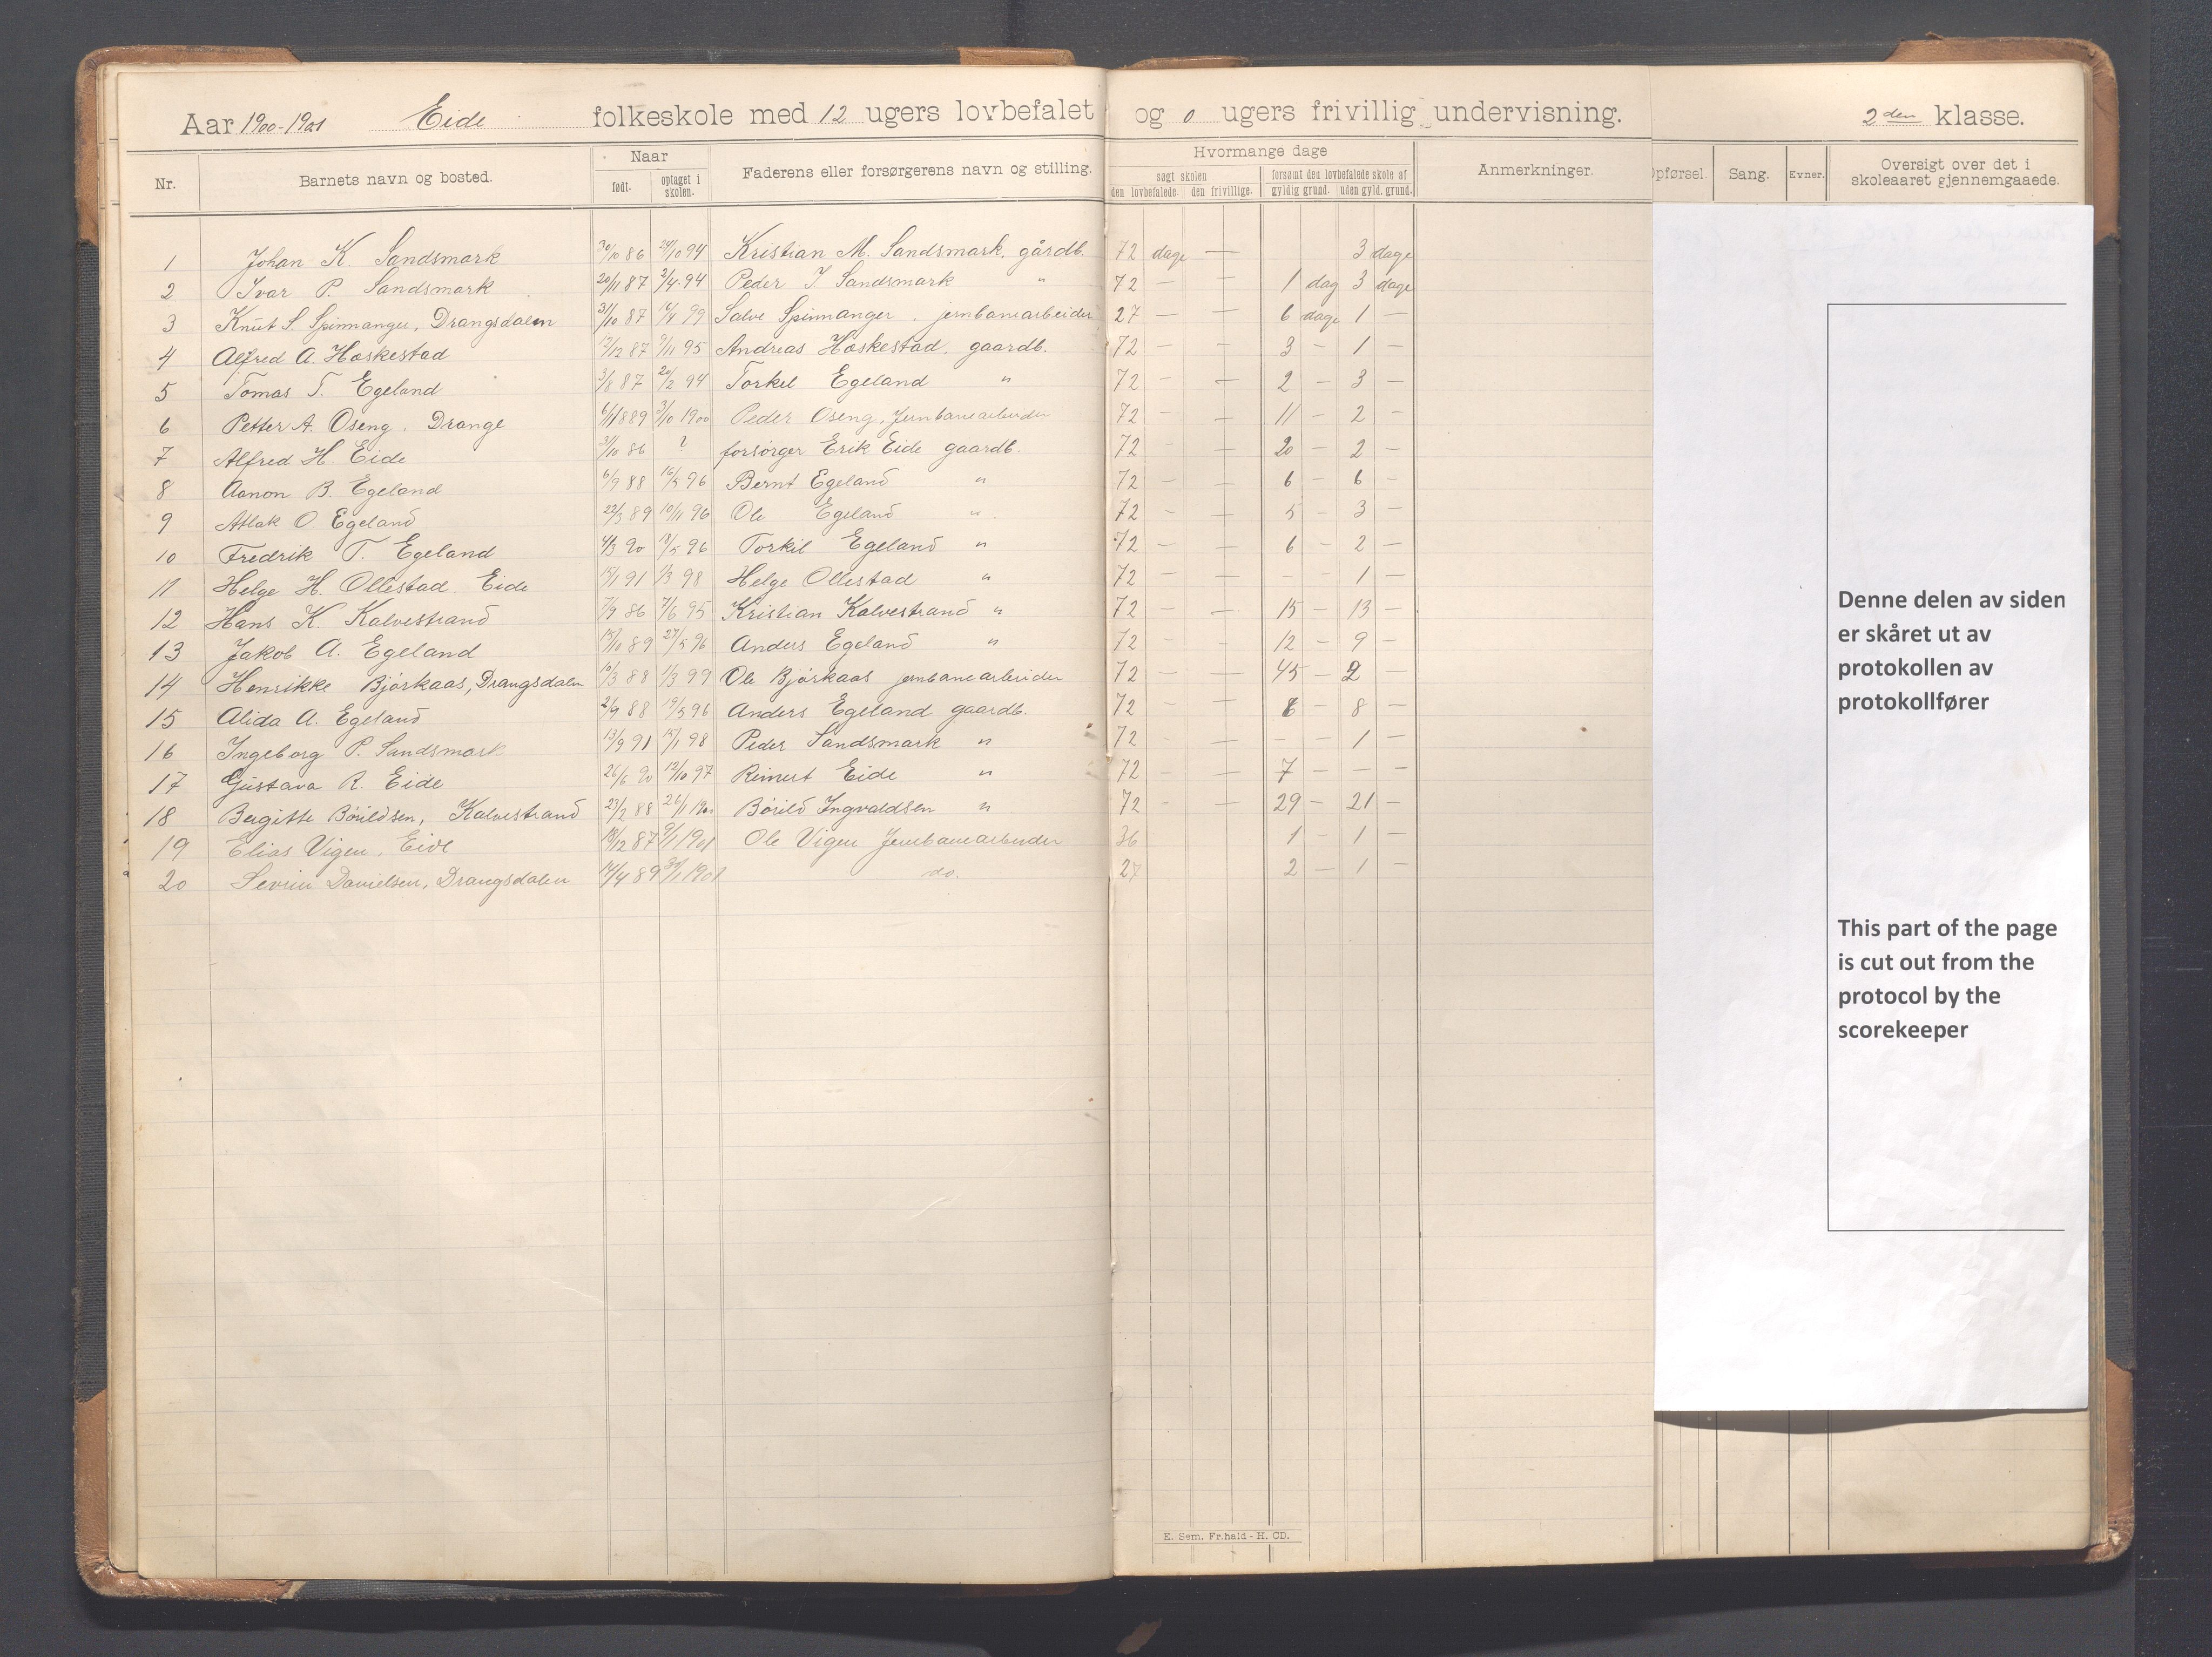 Aar 1900-1901 Eide folkeskole med 12 ugers lovbefalet og 0 ugers frivillig undervisning. 2den klasse.
Nr. Barnets navn og bosted. Naar født. optaget i skolen. Faderens eller forsørgerens navn og stilling. Hvormange dage søgt skolen den lovbefalede. den frivillige. forsømt den lovbefalede skole af gyldig grund. uden gyld. grund. Anmerkninger. Opførsel. Sang. Evner. Oversigt over det i skoleaaret gjennemgaaede.
1 Johan K. Sandsmark 30/10 86 24/10 94 Kristian M. Sandsmark, gårdb. 72 dage — 3 dage
2 Ivar P. Sandsmark 20/11 87 2/4 94 Peder I Sandsmark " 72 — — 1 dag 3 dage
3 Knut S. Spinnanger, Drangsdalen 31/10 87 Salve Spinnanger. jernbanearbeider 27 — — 6 dage 1 —
4 Alfred A. Høskestad 12/12 87 9/11 95 Andreas Høskestad. gaardb. 72 — — 3 — 1 —
5 Tomas T. Egeland 3/8 87 20/2 94 Torkel Egeland " 72 — — 2 — 3 —
6 Petter A. Oseng. Drange 6/1 1889 3/10 1900 Peder Oseng, Jernbanearbeider 72 — — 11 — 2 —
7 Alfred H. Eide 31/10 86 ? forsørger Erik Eide gaardb. 72 — 20 — 2 —
8 Aanon B. Egeland 6/9 88 16/5 96 Bernt Egeland " 72 — — 6 — 6 —
9 Atlak O. Egeland 22/3 89 10/11 96 Ole Egeland " 72 — — 5 — 3 —
10 Fredrik T. Egeland 4/3 90 18/5 96 Torkil Egeland " 72 — — 6 — 2 —
11 Helge H. Ollestad. Eide 15/1 91 1/3 98 Helge Ollestad " 72 — — — — 1 —
12 Hans K. Kalvestrand 7/9 86 7/6 95 Kristian Kalvestrand " 72 — — 15 — 13 —
13 Jakob A. Egeland 15/10 89 27/5 96 Anders Egeland " 72 — — 12 — 9 —
14 Henrikke Bjørkaas, Drangsdalen 10/3 88 1/3 99 Ole Bjørkaas jernbanearbeider 72 — — 45 — 2 —
15 Alida A. Egeland 2/9 88 19/5 96 Anders Egeland gaardb. 72 — — — 8 —
16 Ingeborg P. Sandsmark 13/9 91 15/1 98 Peder Sandsmark " 72 — — — — 1 —
17 Gustava R. Eide 26/6 90 12/10 97 Reinert Eide " 72 — — 7 — — —
18 Bergitte Børildsen, Kalvestrand 23/2 88 26/1 1900 Børild Ingvaldsen " 72 — — 29 — 21 —
19 Elias Vigen, Eide 19/12 87 9/1 1901 Ole Vigen Jernbanearbeider 36 1 — 1 —
20 Sevrin Danielsen, Drangsdalen 14/4 89 30/1 1901 do. 27 2 — 1 —
Denne delen av siden
er skåret ut av
protokollen av
protokollfører
This part of the page
is cut out from the
protocol by the
scorekeeper
E. Sem. Fr.hald - H. CD.